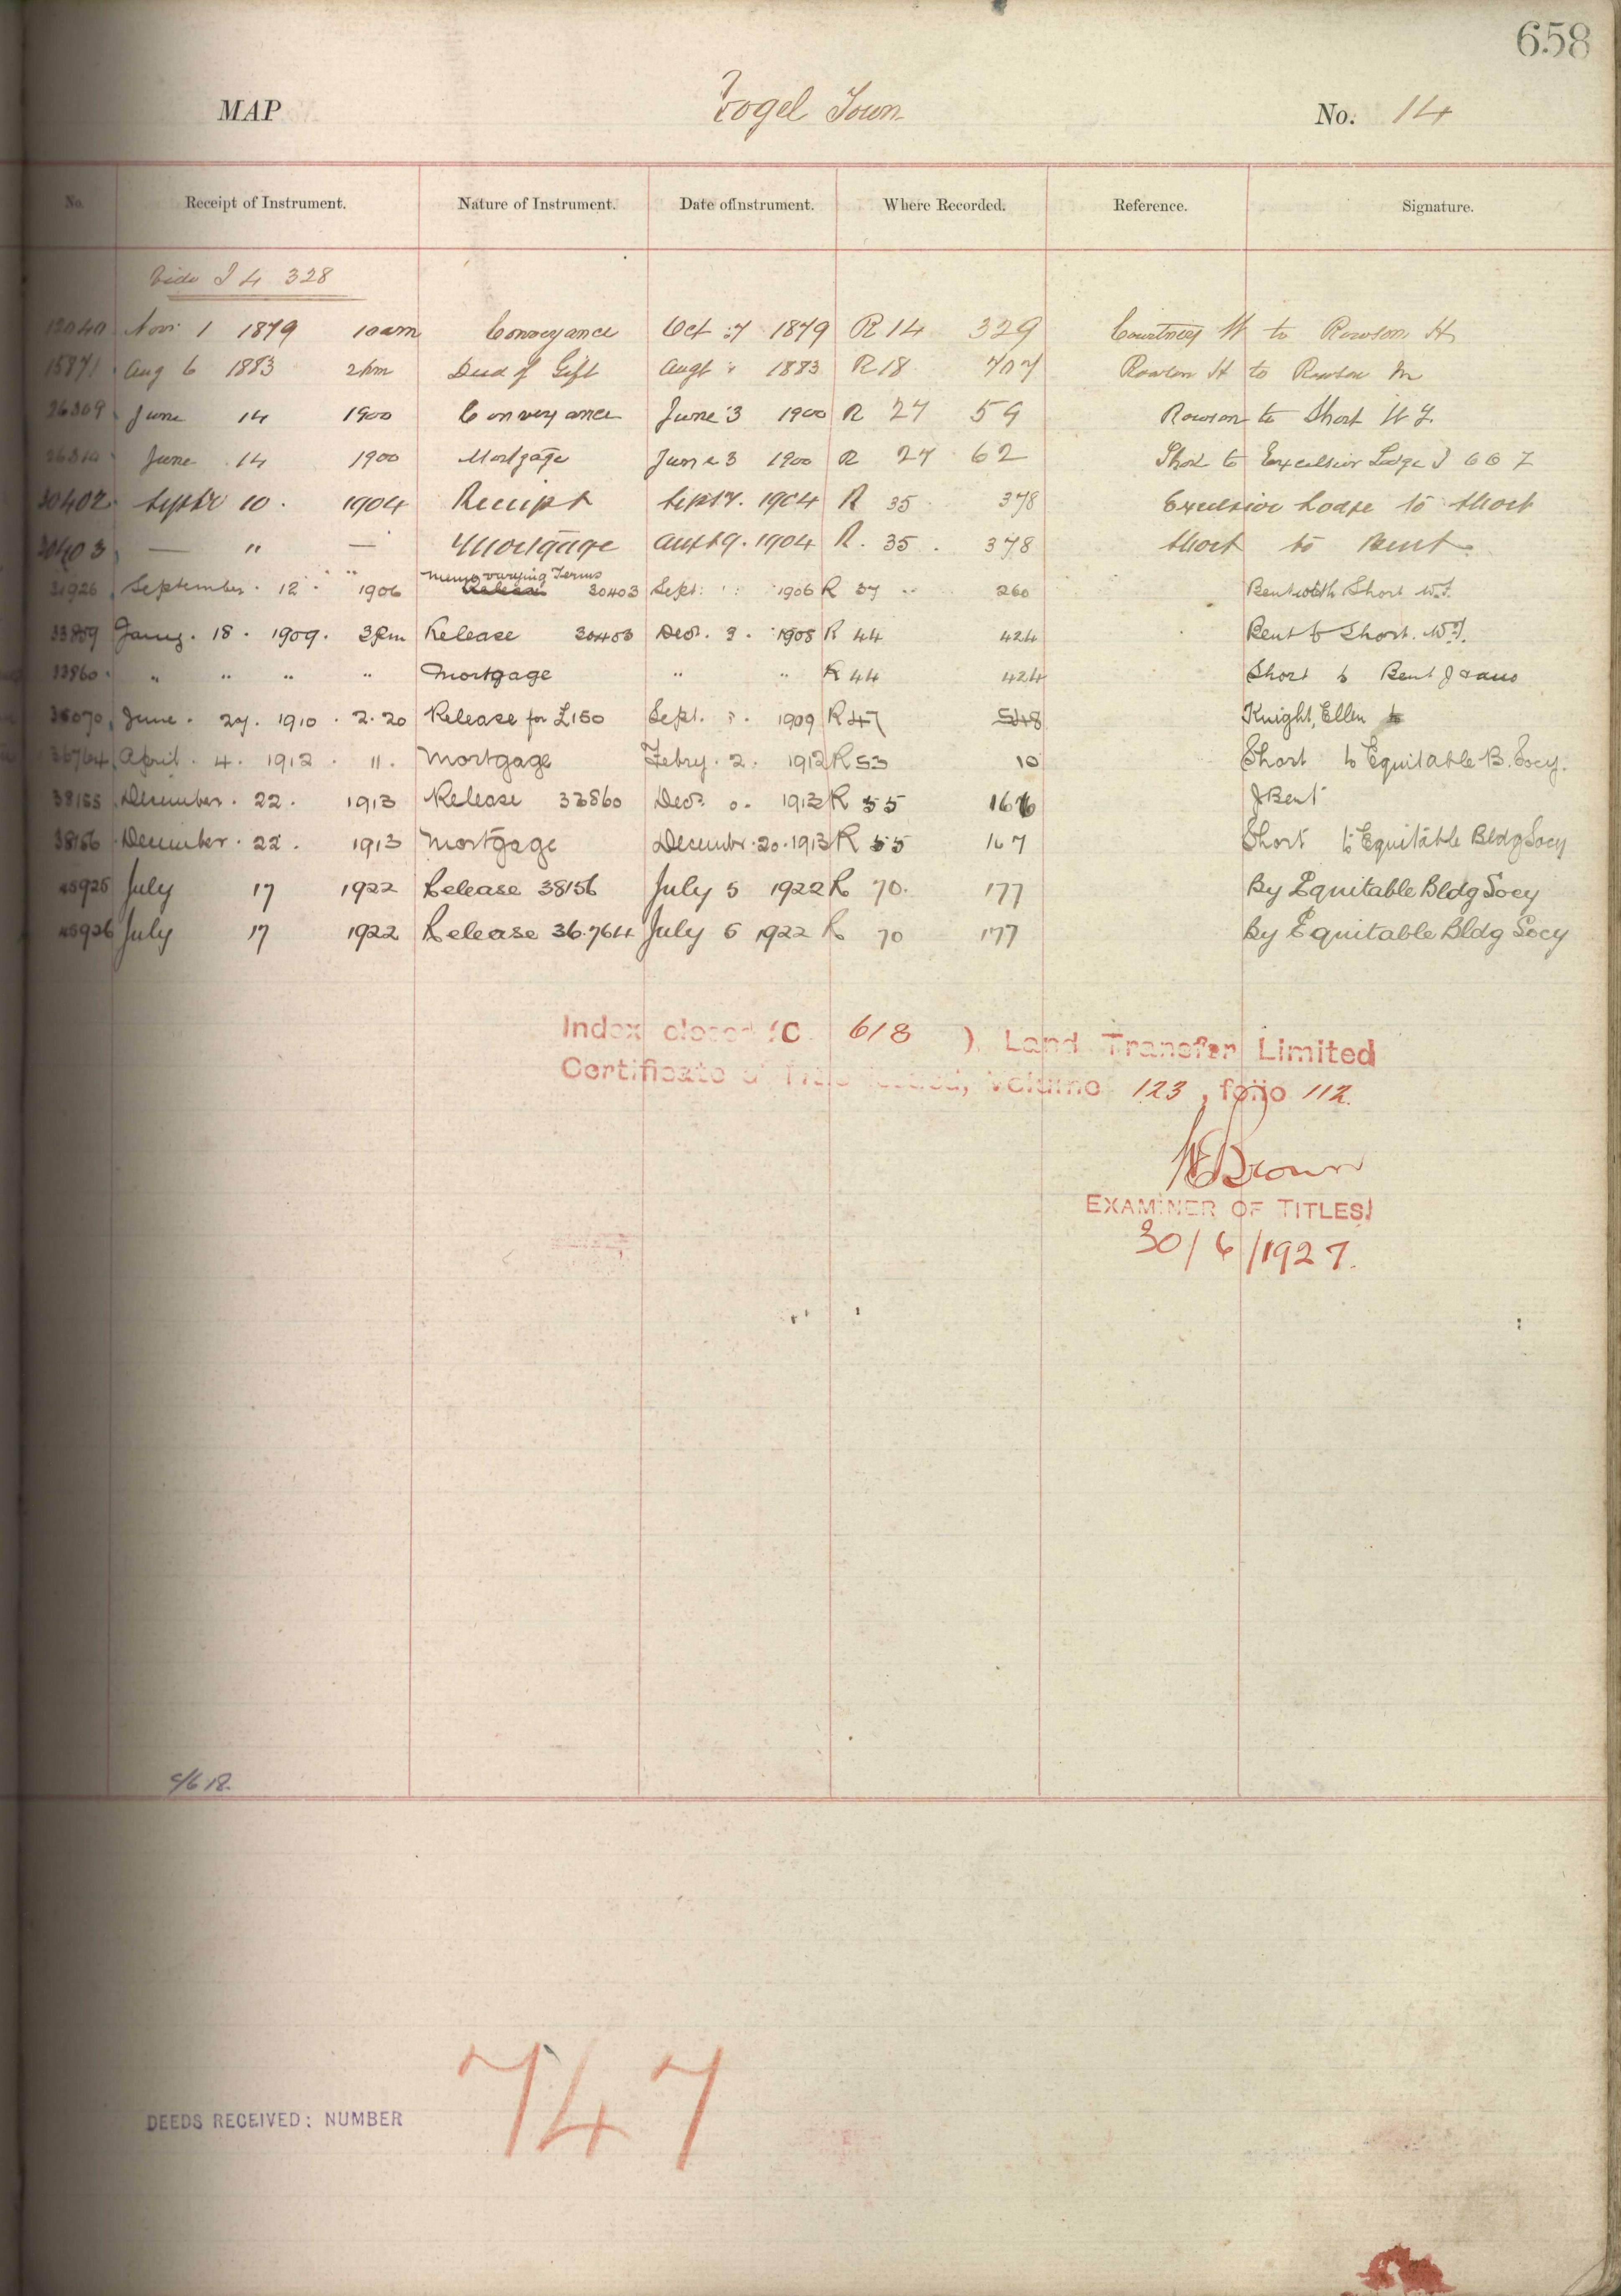 658
MAP Vogel Town No. 14
No. Receipt of Instrument. Nature of Instrument. Date of Instrument. Where Recorded. Reference. Signature.
Vide I 4 328
Nov 1 1879 10am Conveyance Oct 7 1879 R 14 329 Courtney W to Rowson H
15871 Aug 6 1883 2pm Deed of Gift Augt 1883 R 18 707 Rowson H to Rowson M
26309 June 14 1900 Conveyance June 3 1900 R 27 59 Rowson to Short W F
June 14 1900 Mortgage June 3 1900 R 27 62 Short to Excelsior Lodge I O O F
30402 Septr 10. 1904 Receipt Sept 7. 1904 R 35 378 Excelsior Lodge to Short
30403 — " — Mortgage Augt 9. 1904 R. 35. 378 Short to Bent
31926 September. 12. 1906 Memo varying Terms Release 30403 Sept. 1906 R 37 260 Bent with Short W.F.
33859 Jany. 18. 1909. 3pm Release 30403 Decr. 3. 1908 R 44 424 Bent to Short. W.F.
33860 " " " " Mortgage " " R 44 424 Short to Bent J & ano
35070 June. 27. 1910. 2.20 Release for £150 Sept. 1909 R 47 548 Knight, Ellen to
36764 April. 4. 1912. 11. Mortgage Febry. 2. 1912 R 53 10 Short to Equitable B. Socy.
38155 December. 22. 1913 Release 33860 Decr. 1913 R 55 166 J Bent
38156 December. 22. 1913 Mortgage December. 20. 1913 R 55 167 Short to Equitable Bldg Socy
45925 July 17 1922 Release 38156 July 5 1922 R 70. 177 By Equitable Bldg Socy
45926 July 17 1922 Release 36.764 July 5 1922 R 70 177 By Equitable Bldg Socy
Index closed (C 618 ). Land Transfer Limited
Certificate of Title issued, Volume 123, folio 112.
Brown
EXAMINER OF TITLES
30/6/1927.
C/618.
DEEDS RECEIVED: NUMBER 747